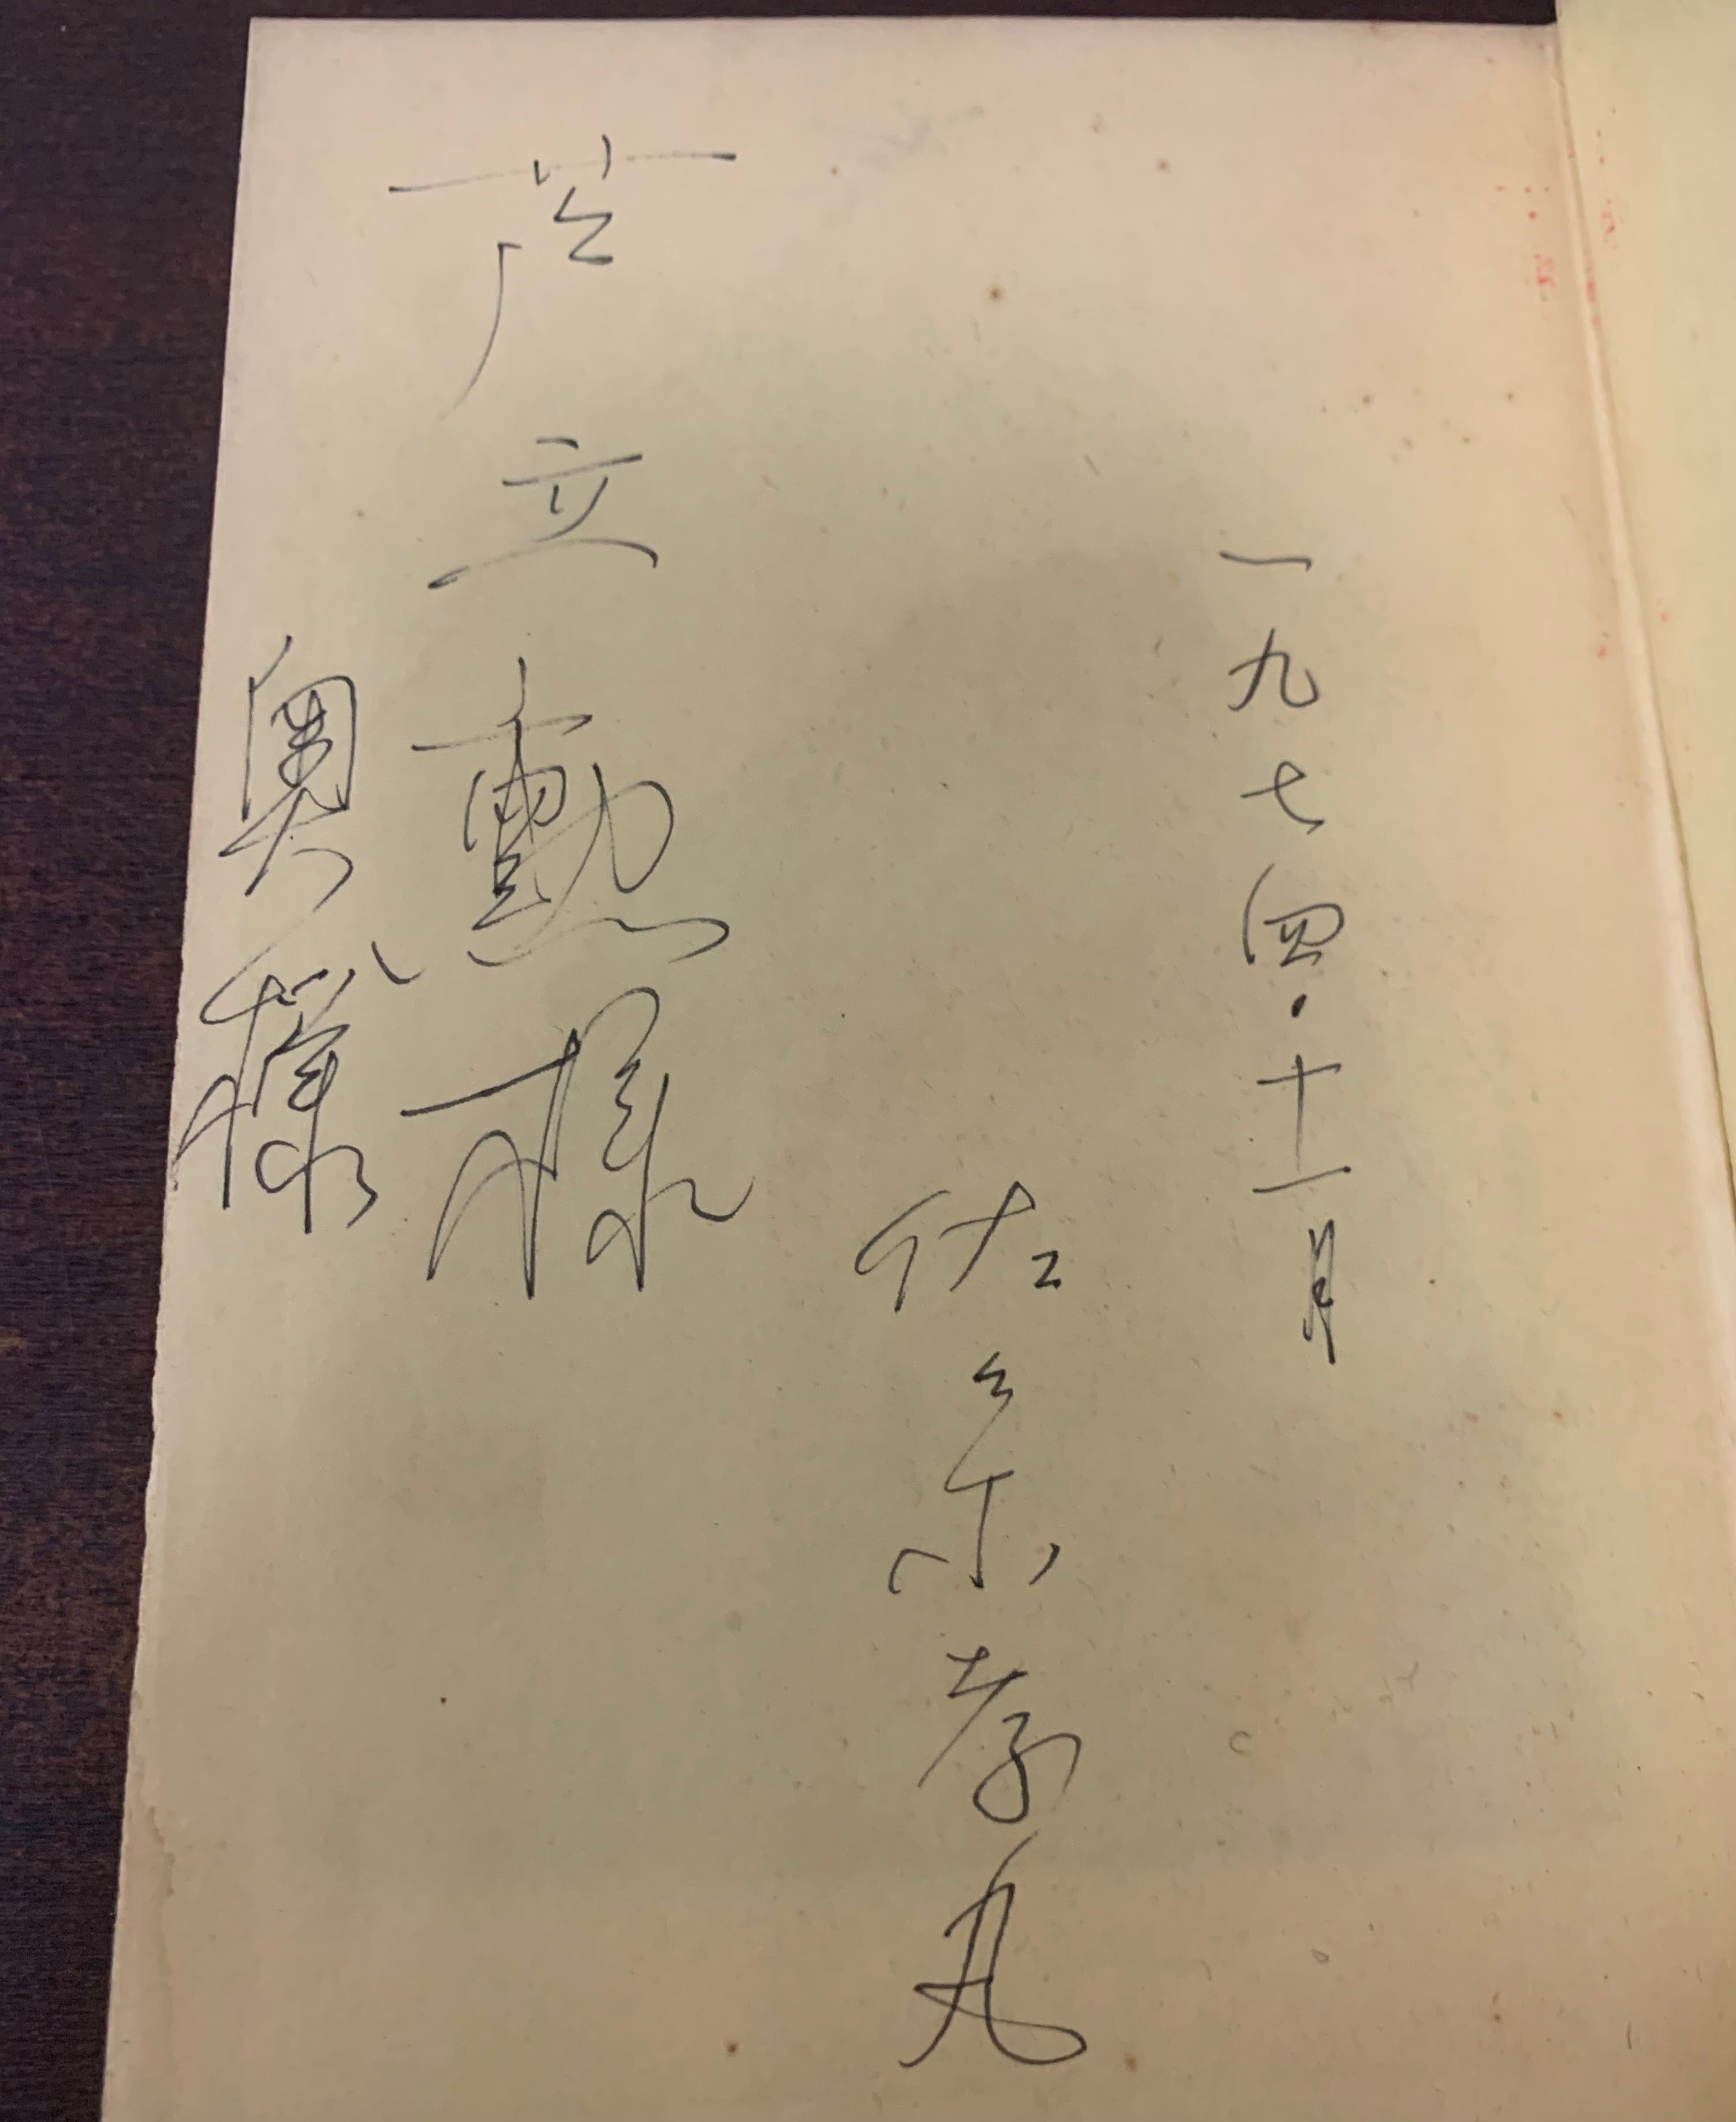 一九七四・十一月
佐々木孝丸
芦立勲様
奥様